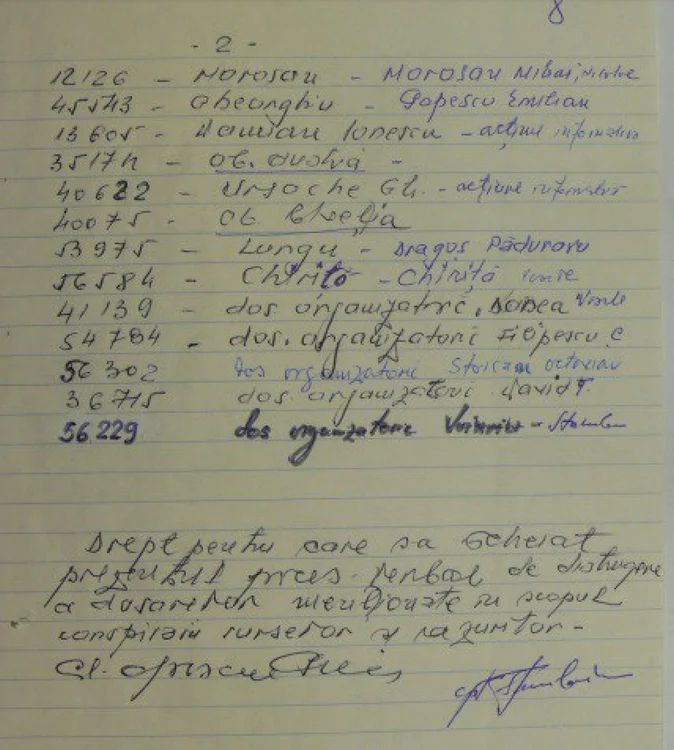 8
- 2 -
12126 - Morosau - Morosau Mihai, Nicolae
45543 - Gheorghiu - Popescu Emilian
13605 - Damian Ionescu - acțiune informativă
35174 - ob.
40622 - Ursache Gh. - acțiune informativă
40075 - ob.
53975 - Lungu - Dragoș Păduraru
56584 - Chiriță - Chiriță
41139 - dos organizatoric Vasile
54784 - dos. organizatoric Filipescu C
56302 dos organizatoric Stoican Octavian
36715 dos. organizatoric David T.
56229 dos organizatoric
Drept pentru care s-a încheiat
prezentul proces-verbal de distrugere
a dosarelor menționate în scopul
conspirării surselor și cazurilor -